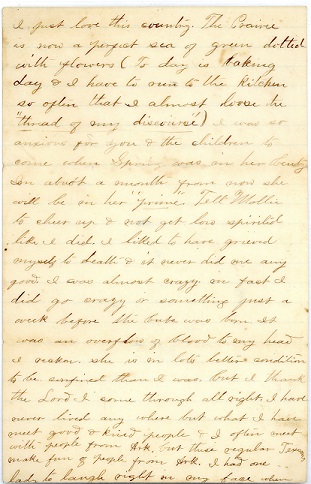 I just love this country. The Prairie
is now a perfect sea of green dotted
with flowers (To day is baking
day & I have to run to the kitchen
so often that I almost loose the
"thread of my discourse") I was so
anxious for you & the children to
come when Spring was in her beauty
In about a month from now she
will be in her "prime". Tell Mollie
to cheer up & not get low spirited
like I did. I liked to have grieved
myself to death & it never did me any
good. I was almost crazy in fact I
did go crazy or something just a
week before the babe was born It
was an overflow of blood to my head
I reckon. She is in lots better condition
to be confined than I was. but I thank
the Lord I come through all right. I have
never lived any where but what I have
meet good & kind people & I often meet
with people from Ark. but these regular Texans
make fun of people from Ark. I had one
lady to laugh right in my face when